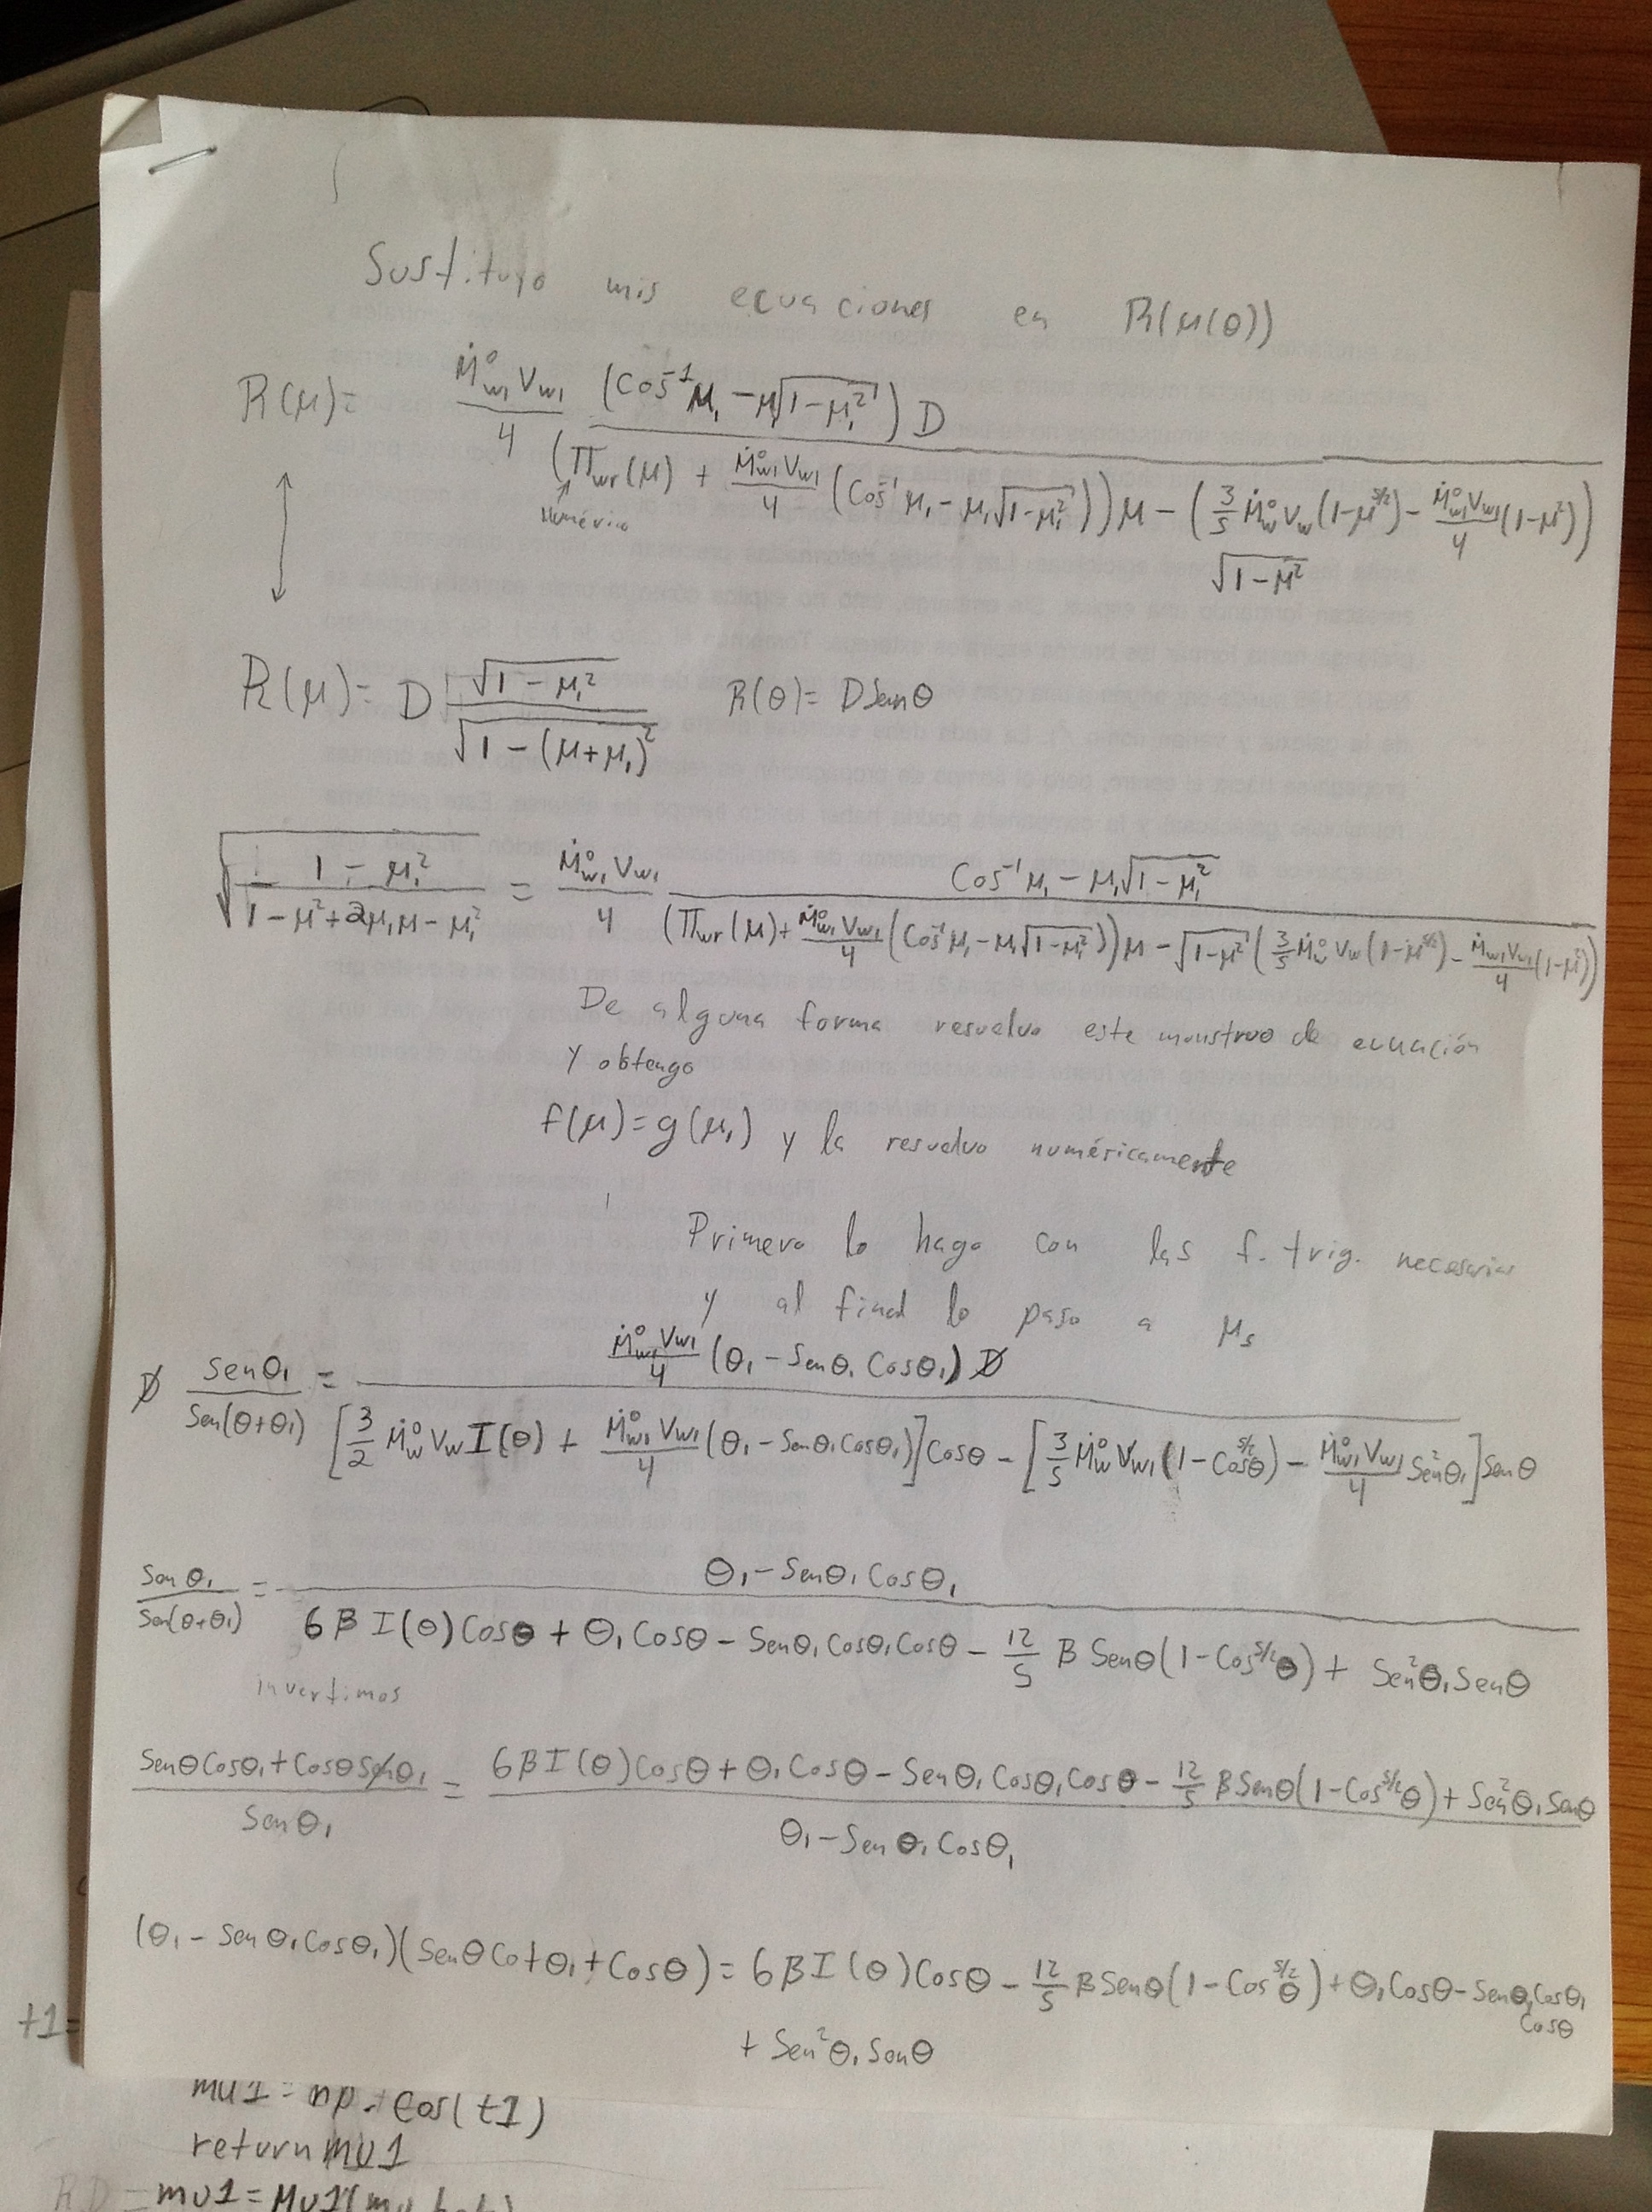 Sustituyo mis ecuaciones en R(μ(θ))
R(μ) = Ṁ°w₁ Vw₁ / 4 (Cos⁻¹μ₁ − μ₁√(1−μ₁²)) D / (Πwr(μ) + Ṁ°w₁Vw₁/4 (Cos⁻¹μ₁ − μ₁√(1−μ₁²))) μ − (3/5 Ṁ°w Vw (1−μ^5/2) − Ṁ°w₁Vw₁/4 (1−μ²)) √(1−μ²)
Numérico
R(μ) = D √(1−μ₁²) / √(1−(μ+μ₁)²) R(θ) = D Senθ
√((1−μ₁²) / (1−μ²+2μ₁μ−μ₁²)) = Ṁ°w₁ Vw₁ / 4 (Cos⁻¹μ₁ − μ₁√(1−μ₁²)) / ((Πwr(μ) + Ṁ°w₁Vw₁/4 (Cos⁻¹μ₁ − μ₁√(1−μ₁²))) μ − √(1−μ²) (3/5 Ṁ°w Vw (1−μ^5/2) − Ṁ°w₁Vw₁/4 (1−μ²)))
De alguna forma resuelvo este monstruo de ecuación
y obtengo
f(μ) = g(μ₁) y la resuelvo numéricamente
Primero lo hago con las f. trig. necesarias
y al final lo paso a μs
D Senθ₁ / Sen(θ+θ₁) = Ṁ°w₁Vw₁/4 (θ₁ − Senθ₁ Cosθ₁) D / [3/2 Ṁ°w Vw I(θ) + Ṁ°w₁Vw₁/4 (θ₁ − Senθ₁Cosθ₁)] Cosθ − [3/5 Ṁ°w Vw₁ (1−Cos^5/2 θ) − Ṁ°w₁Vw₁/4 Sen²θ₁] Senθ
Senθ₁ / Sen(θ+θ₁) = θ₁ − Senθ₁ Cosθ₁ / 6βI(θ)Cosθ + θ₁Cosθ − Senθ₁Cosθ₁Cosθ − 12/5 β Senθ(1−Cos^5/2 θ) + Sen²θ₁Senθ
invertimos
SenθCosθ₁ + CosθSenθ₁ / Senθ₁ = 6βI(θ)Cosθ + θ₁Cosθ − Senθ₁Cosθ₁Cosθ − 12/5 βSenθ(1−Cos^5/2 θ) + Sen²θ₁Senθ / θ₁ − Senθ₁Cosθ₁
(θ₁ − Senθ₁Cosθ₁)(SenθCotθ₁ + Cosθ) = 6βI(θ)Cosθ − 12/5 βSenθ(1−Cos^5/2 θ) + θ₁Cosθ − Senθ₁Cosθ₁ Cosθ
+ Sen²θ₁ Senθ
t1=
mu1 = np.cos(t1)
return mu1